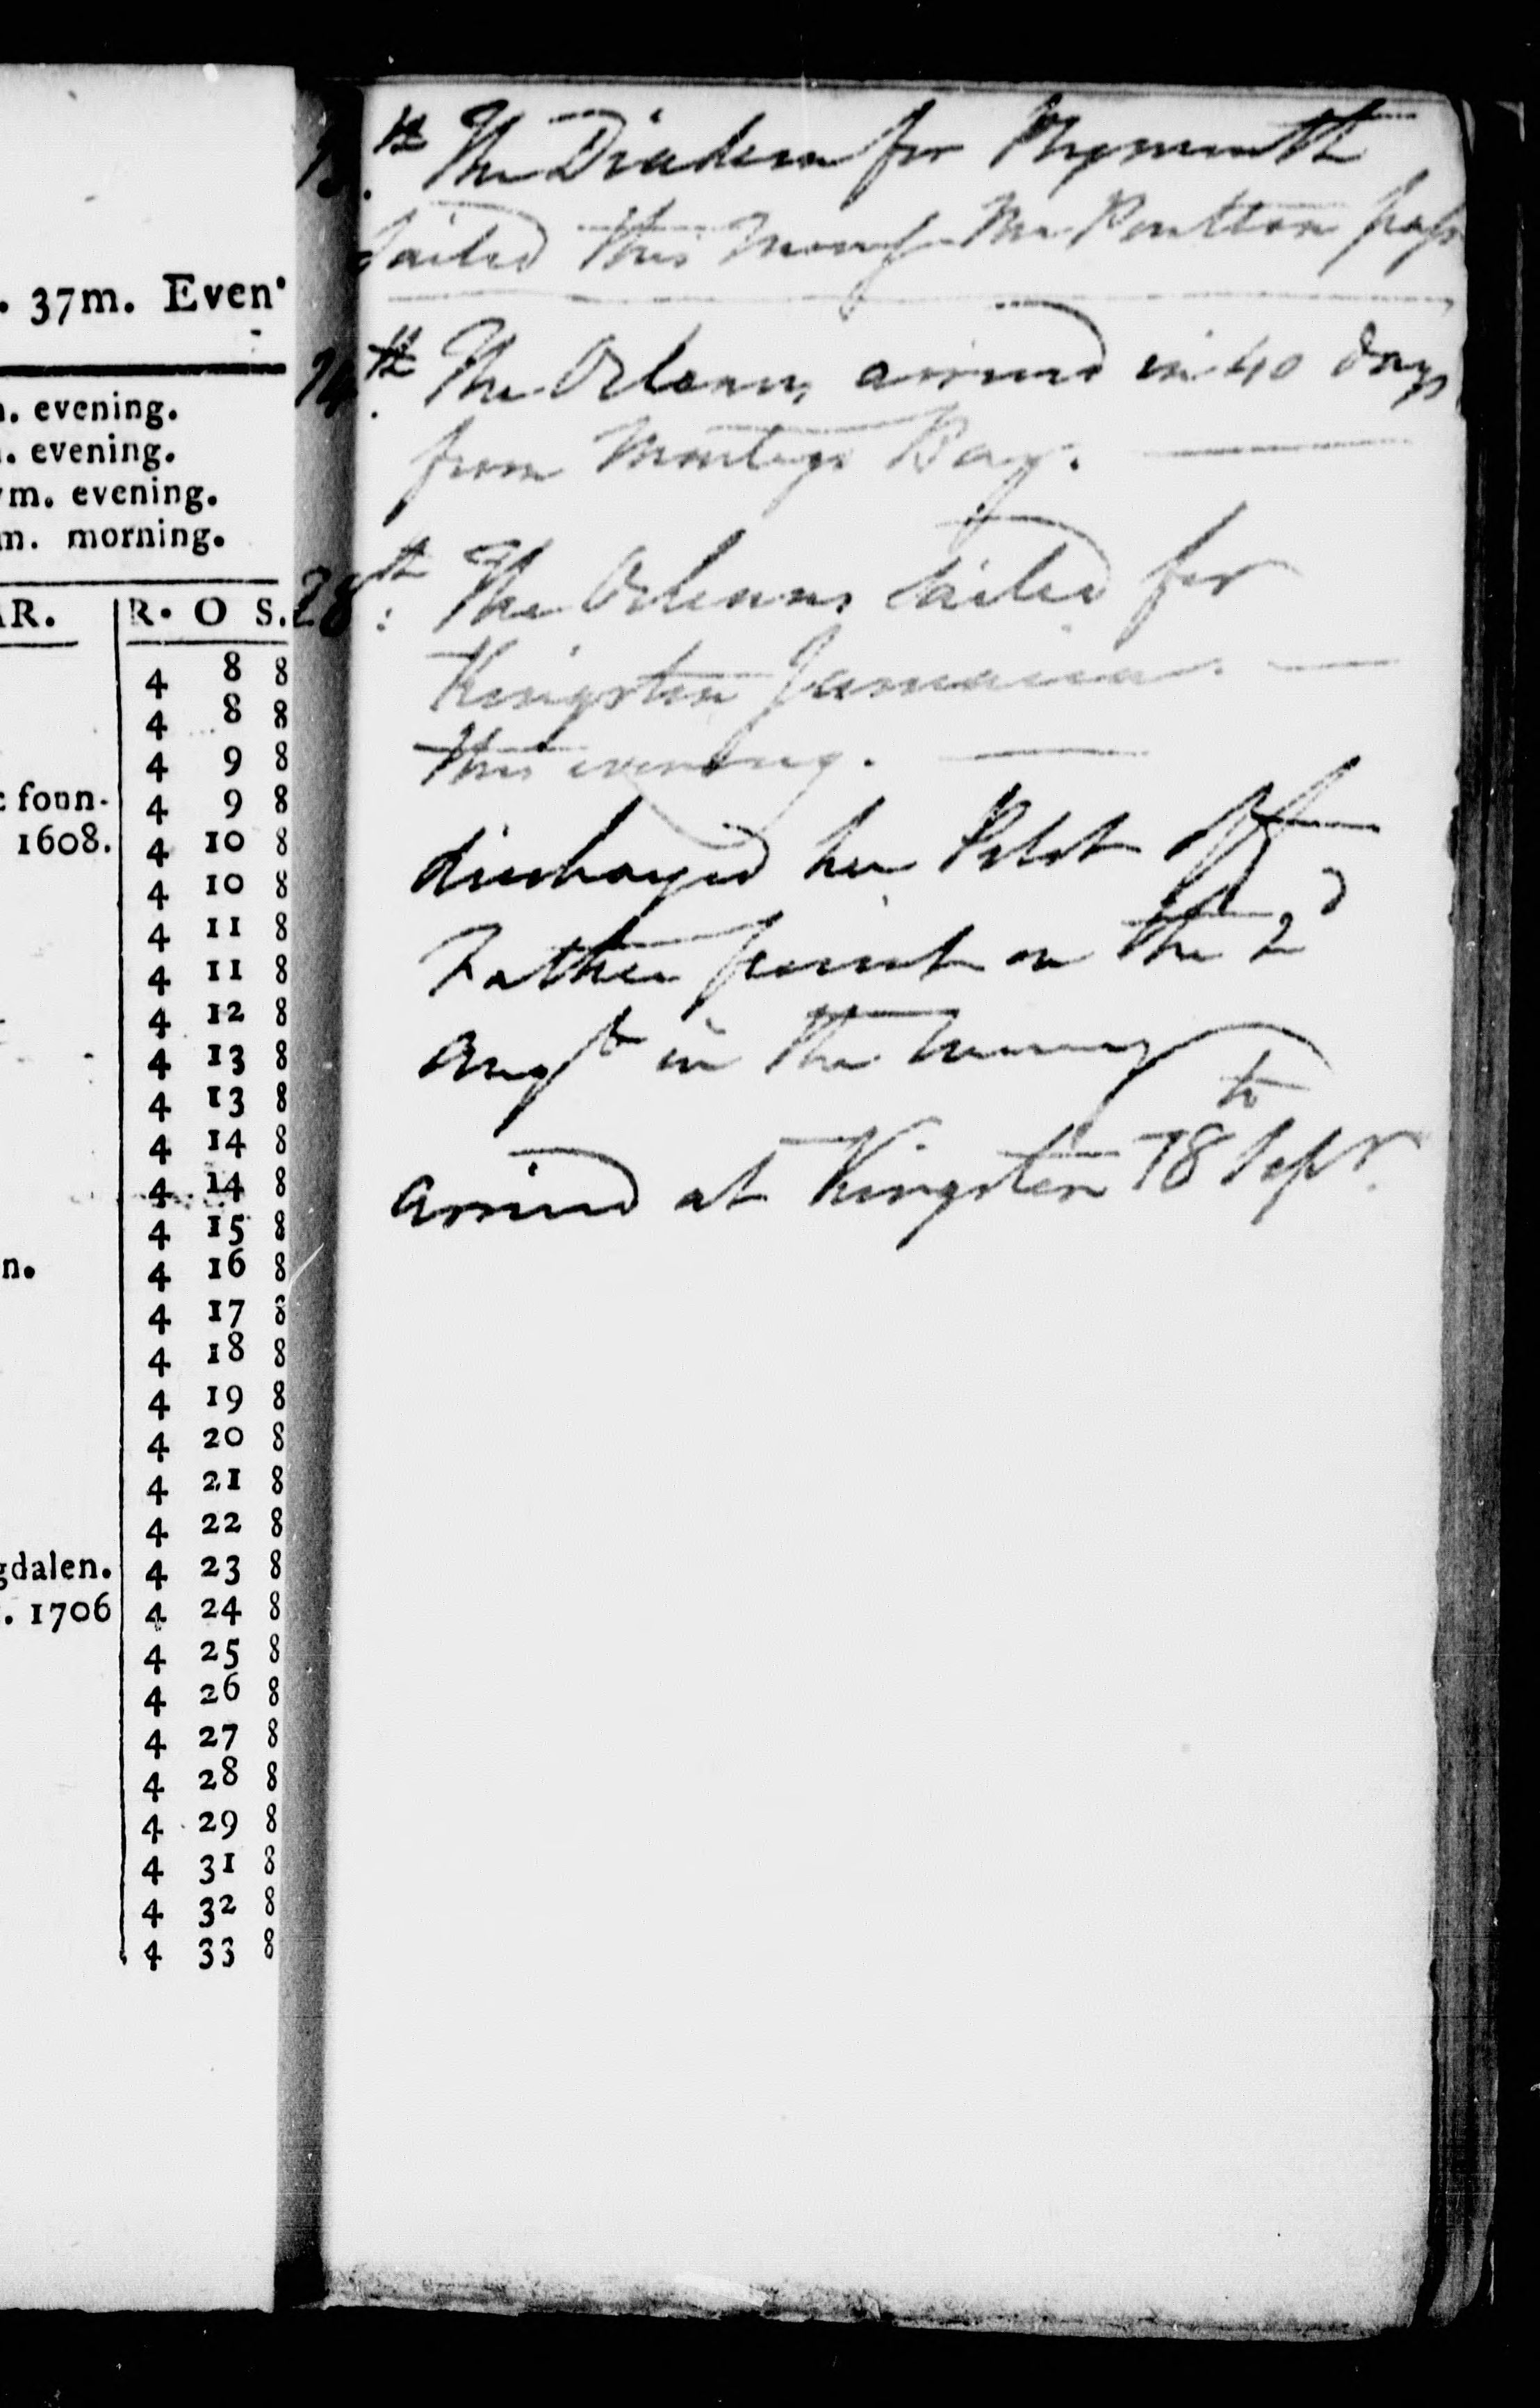 . 37m. Even'
. evening.
. evening.
m. evening.
m. morning.
AR. R. O S.
4 8 8
4 8 8
4 9 8
foun- 4 9 8
1608. 4 10 8
4 10 8
4 11 8
4 11 8
4 12 8
4 13 8
4 13 8
4 14 8
4 14 8
4 15 8
n. 4 16 8
4 17 8
4 18 8
4 19 8
4 20 8
4 21 8
4 22 8
gdalen. 4 23 8
. 1706 4 24 8
4 25 8
4 26 8
4 27 8
4 28 8
4 29 8
4 31 8
4 32 8
4 33 8
13th. The Diadem for Plymouth
Sailed this Morng Mr Poulton pass
14th. The Orleans arrived in 40 days
from Montego Bay.
28th: The Orleans Sailed for
Kingston Jamaica.
this evening.
discharged her Pilot off
Father point on the 2d
Augt in the
arrived at Kingston 18th Sepr.